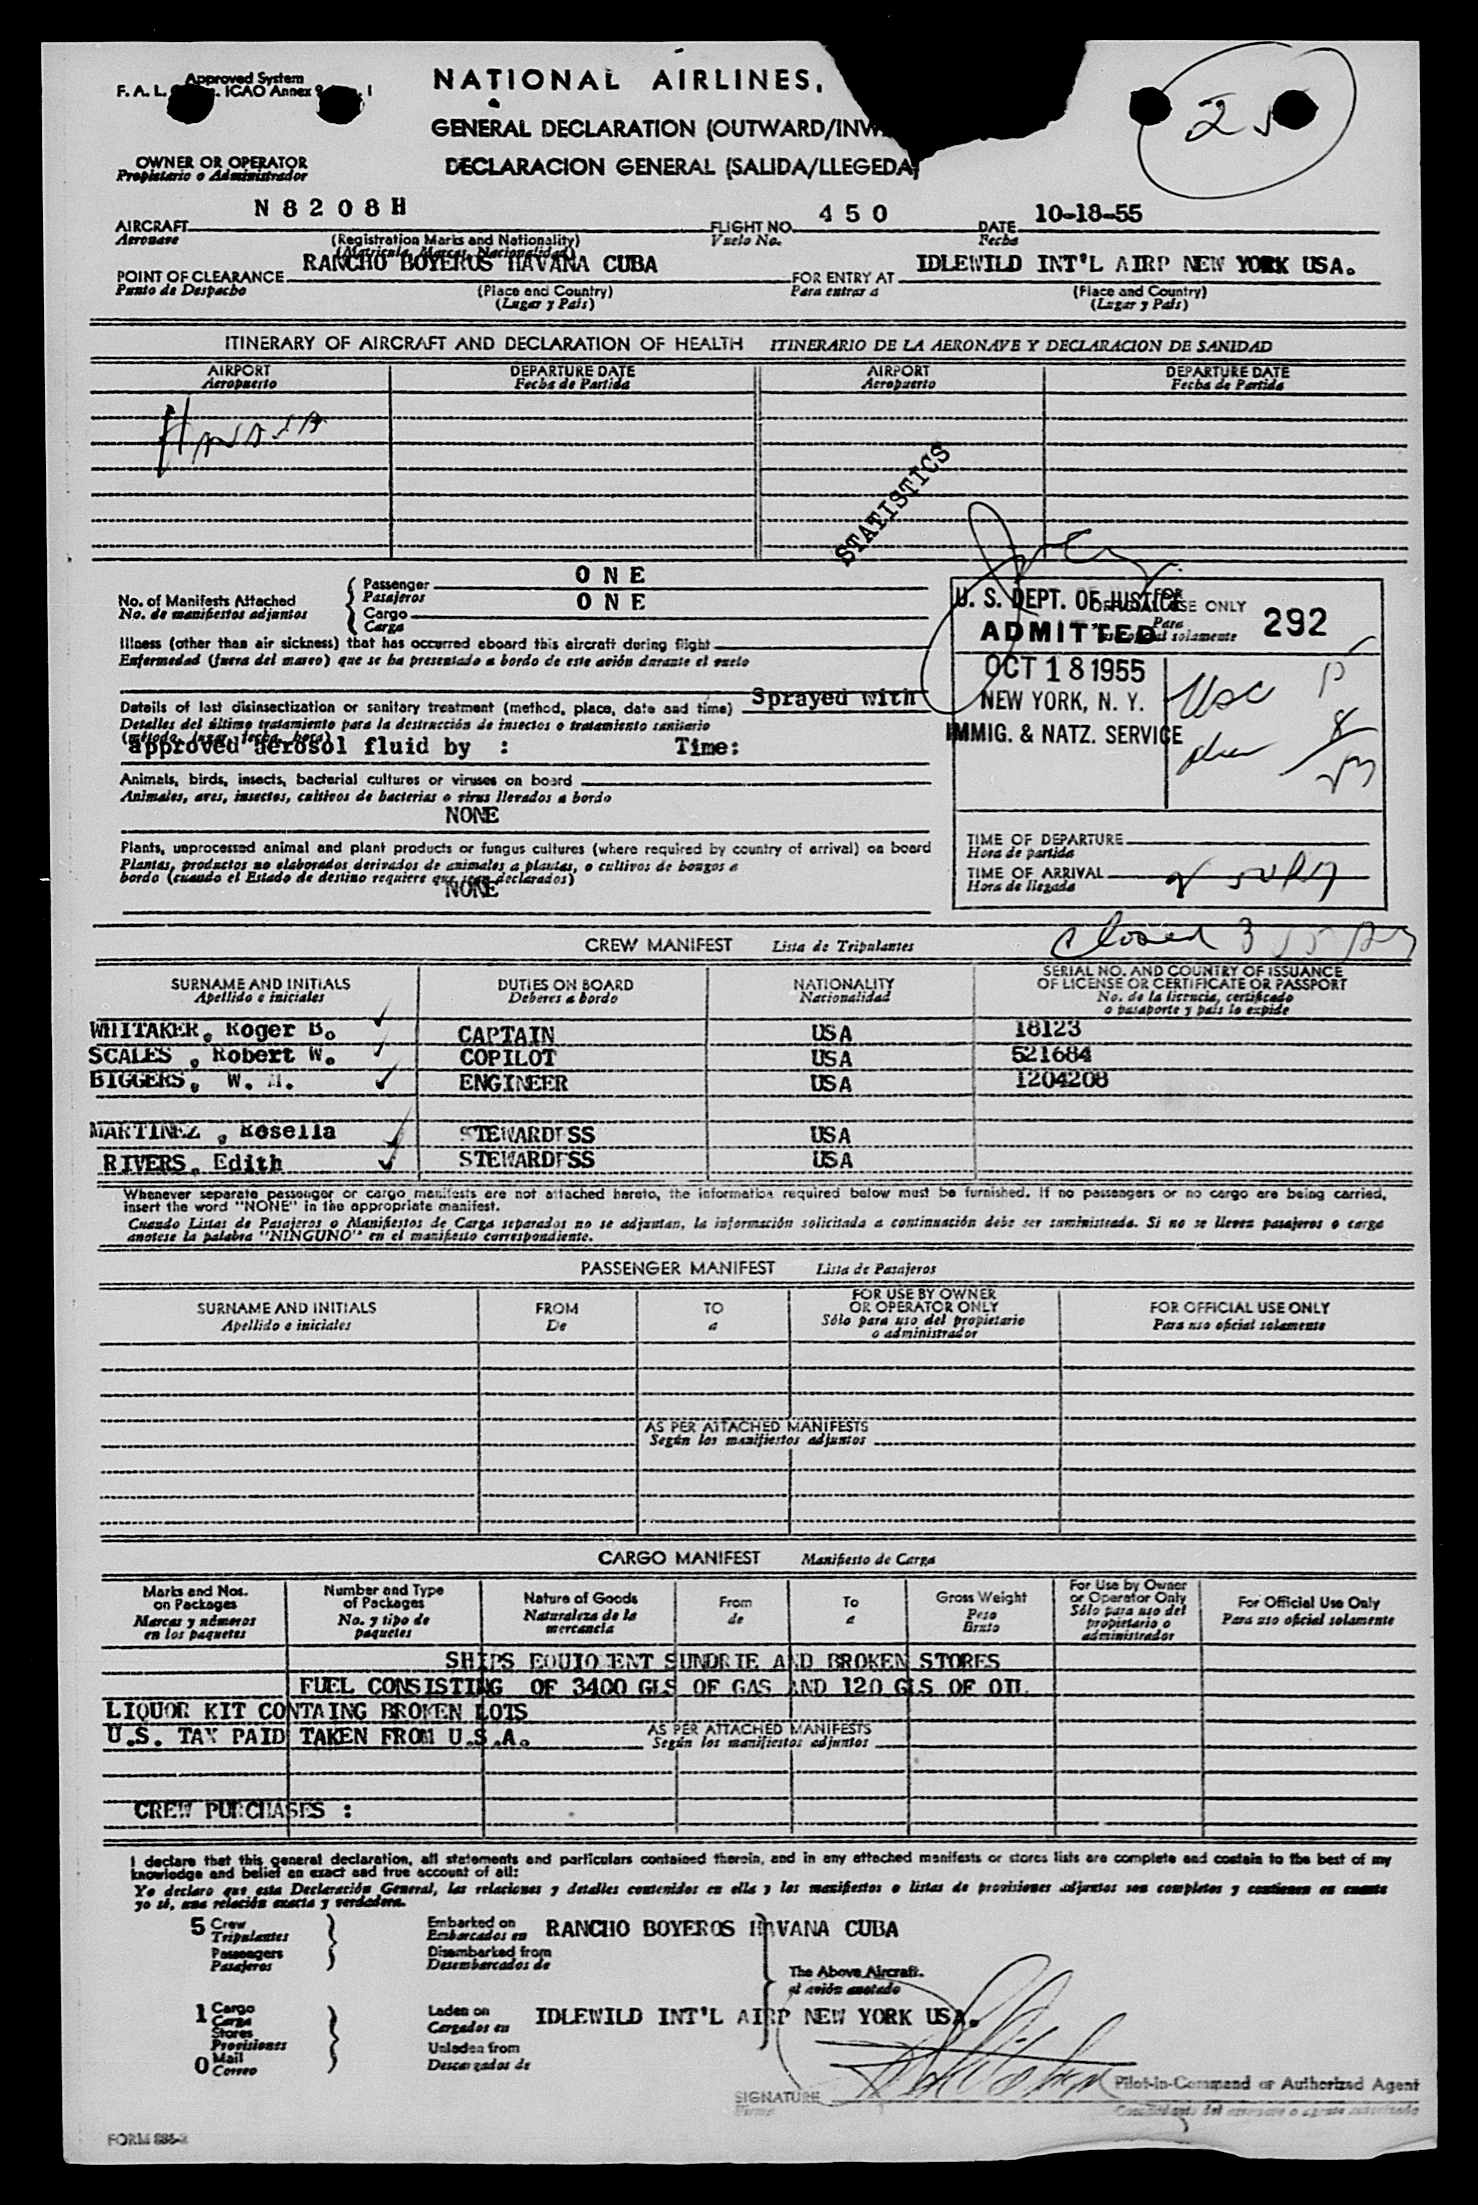 Approved System
F. A. L. ICAO Annex 9
NATIONAL AIRLINES,
25
GENERAL DECLARATION (OUTWARD/INW
OWNER OR OPERATOR
Propietario o Administrador
DECLARACION GENERAL (SALIDA/LLEGEDA)
AIRCRAFT N 8 2 0 8 H FLIGHT NO. 4 5 0 DATE 10-18-55
Aeronave Vuelo No. Fecha
(Registration Marks and Nationality)
(Matricula, Marcas, Nacionalidad)
POINT OF CLEARANCE RANCHO BOYEROS HAVANA CUBA FOR ENTRY AT IDLEWILD INT'L AIRP NEW YORK USA.
Punto de Despacho (Place and Country) Para entrar a (Place and Country)
(Lugar y País) (Lugar y País)
ITINERARY OF AIRCRAFT AND DECLARATION OF HEALTH ITINERARIO DE LA AERONAVE Y DECLARACION DE SANIDAD
AIRPORT DEPARTURE DATE AIRPORT DEPARTURE DATE
Aeropuerto Fecha de Partida Aeropuerto Fecha de Partida
Havana
STATISTICS
No. of Manifests Attached
No. de manifiestos adjuntos
Passenger O N E
Pasajeros
Cargo O N E
Carga
Illness (other than air sickness) that has occurred aboard this aircraft during flight
Enfermedad (fuera del mareo) que se ha presentado a bordo de este avión durante el vuelo
Details of last disinsectization or sanitary treatment (method, place, date and time) Sprayed with
Detalles del último tratamiento para la destrucción de insectos o tratamiento sanitario
(método, lugar, fecha, hora)
approved aerosol fluid by : Time:
Animals, birds, insects, bacterial cultures or viruses on board
Animales, aves, insectos, cultivos de bacterias o virus llevados a bordo
NONE
Plants, unprocessed animal and plant products or fungus cultures (where required by country of arrival) on board
Plantas, productos no elaborados derivados de animales a plantas, o cultivos de hongos a
bordo (cuando el Estado de destino requiere que sean declarados)
NONE
FOR OFFICIAL USE ONLY
Para uso oficial solamente
U. S. DEPT. OF JUSTICE
ADMITTED 292
OCT 18 1955
NEW YORK, N. Y.
IMMIG. & NATZ. SERVICE
USC
TIME OF DEPARTURE
Hora de partida
TIME OF ARRIVAL
Hora de llegada
Closed
CREW MANIFEST Lista de Tripulantes
SURNAME AND INITIALS DUTIES ON BOARD NATIONALITY SERIAL NO. AND COUNTRY OF ISSUANCE
OF LICENSE OR CERTIFICATE OR PASSPORT
Apellido e iniciales Deberes a bordo Nacionalidad No. de la licencia, certificado
o pasaporte y país lo expide
WHITAKER, Roger B. CAPTAIN USA 18123
SCALES , Robert W. COPILOT USA 521684
BIGGERS, W. M. ENGINEER USA 1204208
MARTINEZ , Rosella STEWARDESS USA
RIVERS, Edith STEWARDESS USA
Whenever separate passenger or cargo manifests are not attached hereto, the information required below must be furnished. If no passengers or no cargo are being carried,
insert the word "NONE" in the appropriate manifest.
Cuando Listas de Pasajeros o Manifiestos de Carga separados no se adjuntan, la información solicitada a continuación debe ser suministrada. Si no se lleven pasajeros o carga
anotese la palabra "NINGUNO" en el manifiesto correspondiente.
PASSENGER MANIFEST Lista de Pasajeros
SURNAME AND INITIALS FROM TO FOR USE BY OWNER OR OPERATOR ONLY FOR OFFICIAL USE ONLY
Apellido e iniciales De a Sólo para uso del propietario o administrador Para uso oficial solamente
AS PER ATTACHED MANIFESTS
Según los manifiestos adjuntos
CARGO MANIFEST Manifiesto de Carga
Marks and Nos. on Packages Number and Type of Packages Nature of Goods From To Gross Weight For Use by Owner or Operator Only For Official Use Only
Marcas y números en los paquetes No. y tipo de paquetes Naturaleza de la mercancia de a Peso Bruto Sólo para uso del propietario o administrador Para uso oficial solamente
SHIPS EQUIPMENT SUNDRIE AND BROKEN STORES
FUEL CONSISTING OF 3400 GLS OF GAS AND 120 GLS OF OIL
LIQUOR KIT CONTAING BROKEN LOTS
U.S. TAX PAID TAKEN FROM U.S.A.
AS PER ATTACHED MANIFESTS
Según los manifiestos adjuntos
CREW PURCHASES :
I declare that this general declaration, all statements and particulars contained therein, and in any attached manifests or stores lists are complete and contain to the best of my
knowledge and belief an exact and true account of all:
Yo declaro que esta Declaración General, las relaciones y detalles contenidos en ella y los manifiestos o listas de provisiones adjuntos son completos y contienen en cuanto
yo sé, una relación exacta y verdadera.
5 Crew Embarked on RANCHO BOYEROS HAVANA CUBA
Tripulantes Embarcados en
Passengers Disembarked from
Pasajeros Desembarcados de
The Above Aircraft.
al avión anotado
1 Cargo Laden on IDLEWILD INT'L AIRP NEW YORK USA.
Carga Cargados en
Stores
Provisiones Unladen from
0 Mail Descargados de
Correo
SIGNATURE Pilot-in-Command or Authorized Agent
Firma
FORM